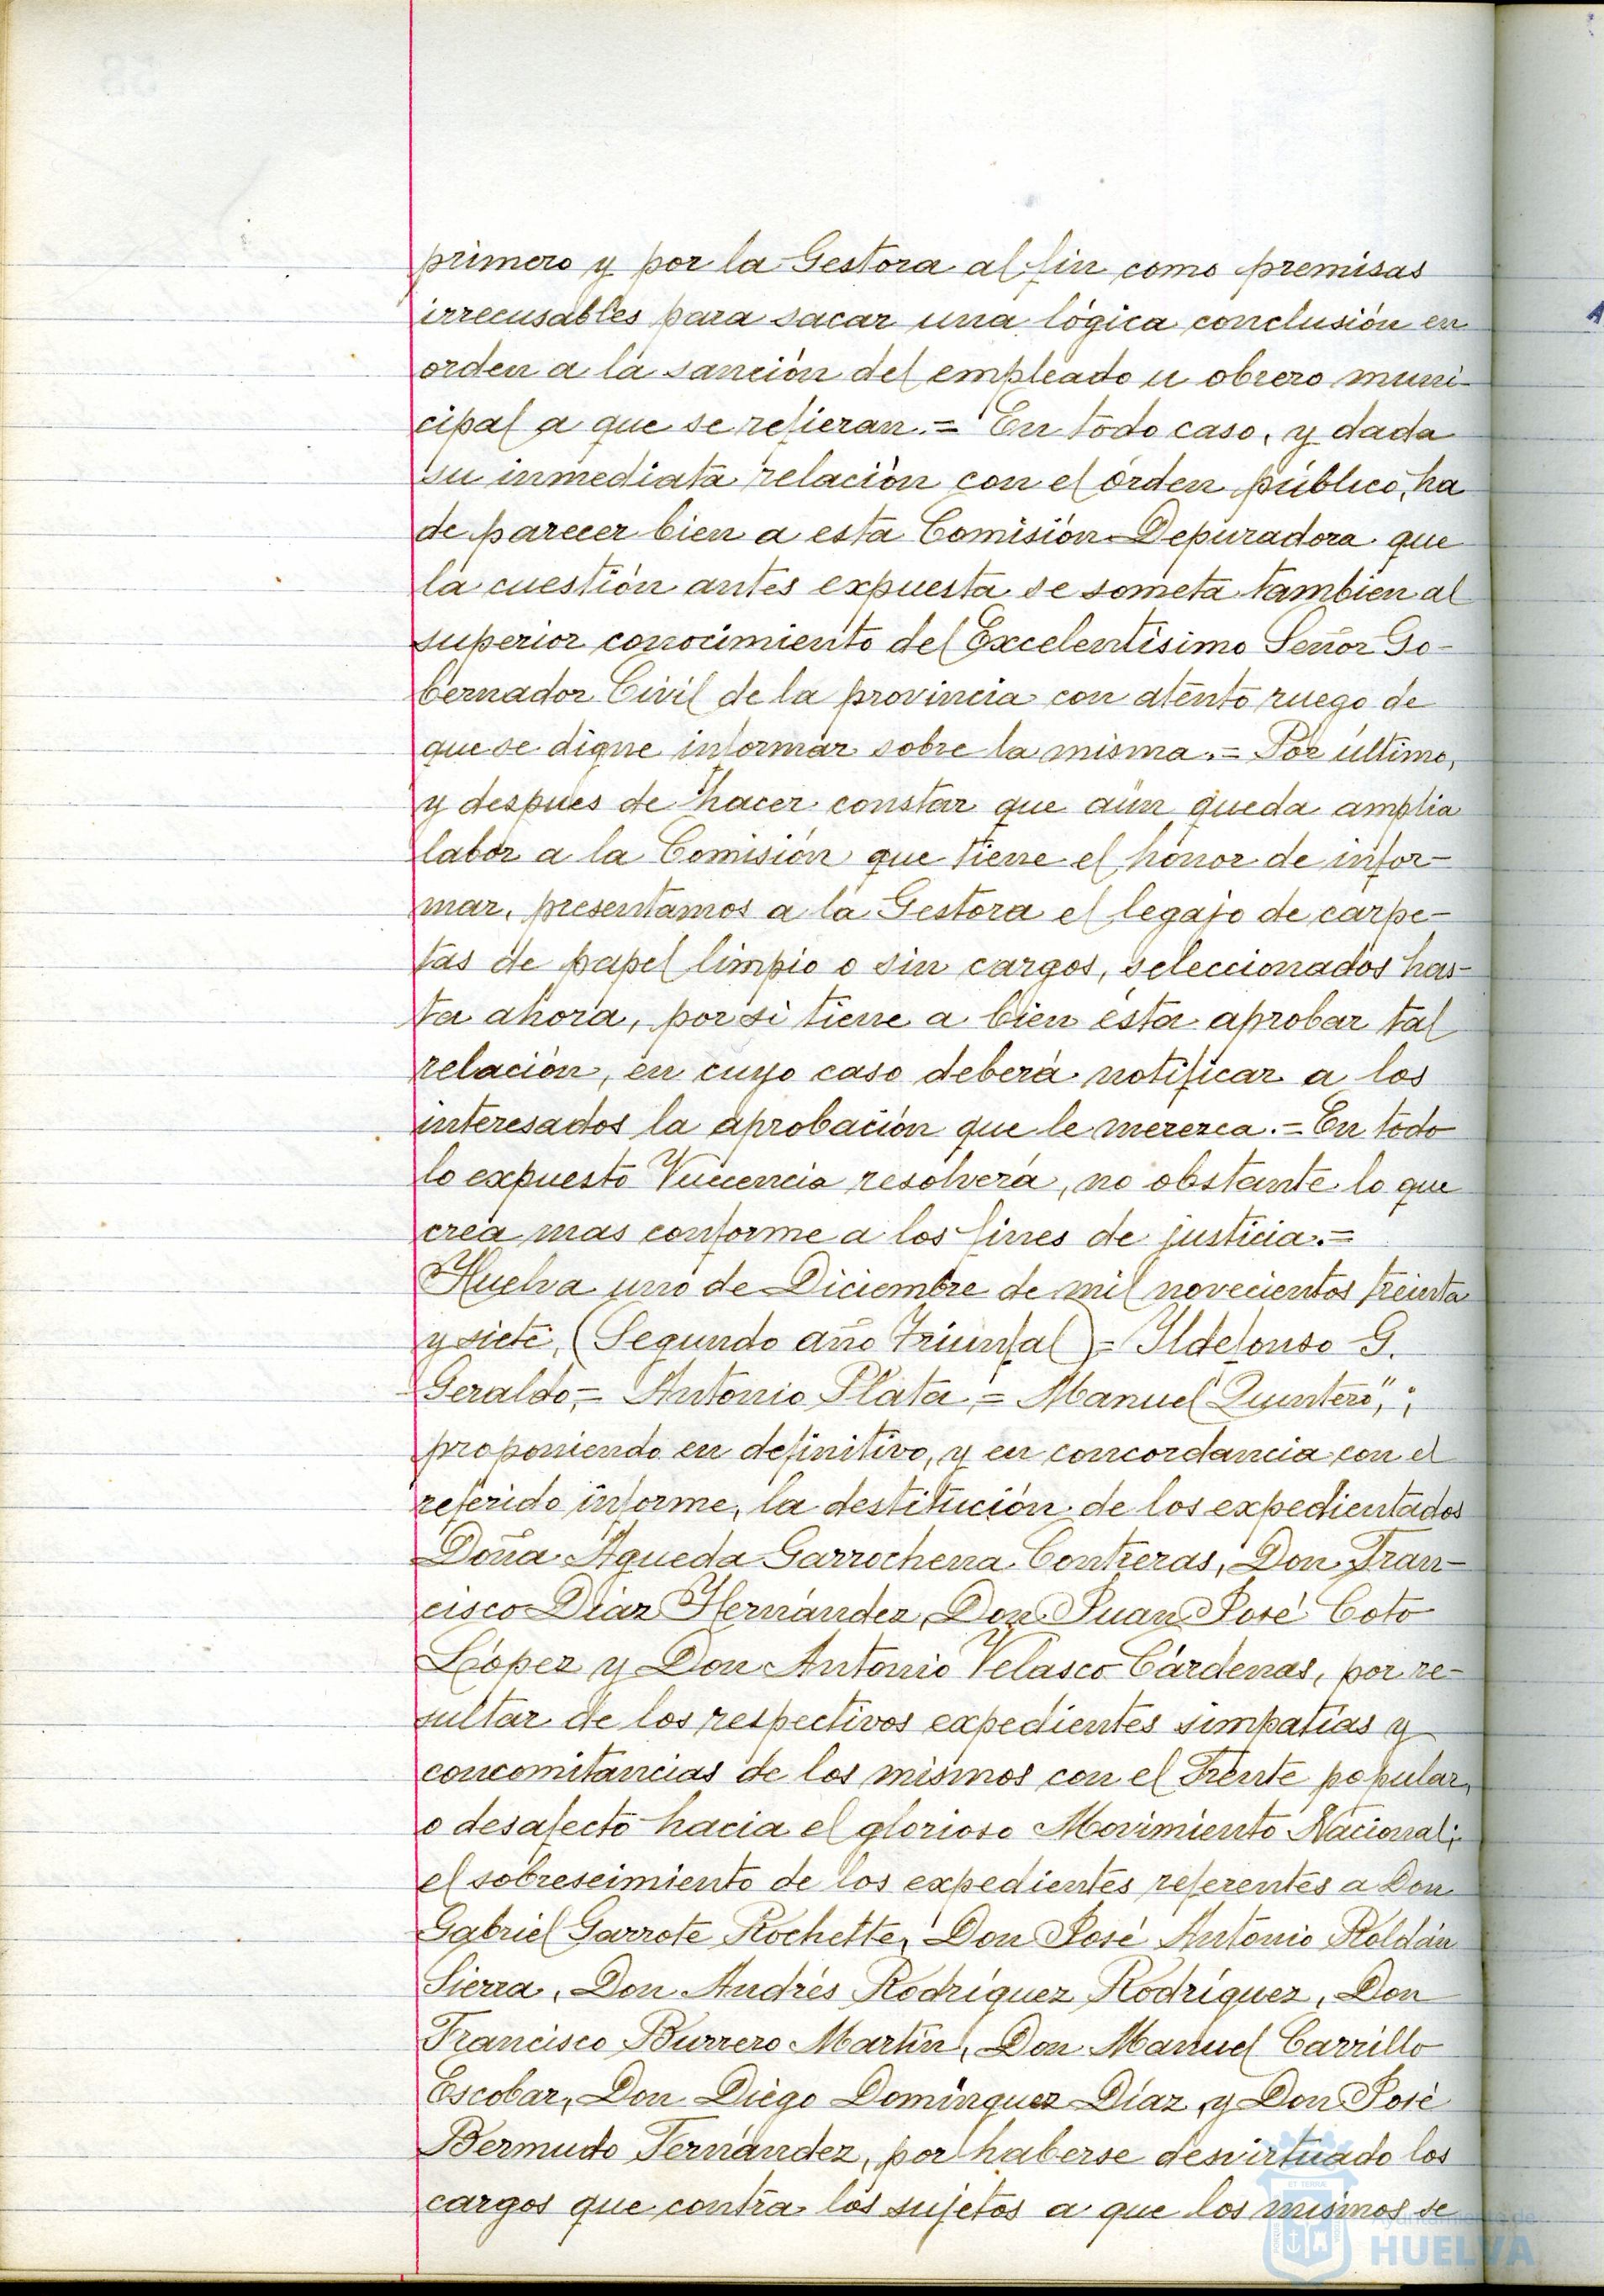 primero y por la Gestora al fin como premisas
irrecusables para sacar una lógica conclusión en
orden a la sanción del empleado u obrero muni-
cipal a que se refieran.= En todo caso, y dada
su inmediata relación con el órden público, ha
de parecer bien a esta Comisión Depuradora que
la cuestión antes expuesta se someta tambien al
superior conocimiento del Excelentísimo Señor Go-
bernador Civil de la provincia con atento ruego de
que se digne informar sobre la misma.= Por último,
y despues de hacer constar que aún queda amplia
labor a la Comisión que tiene el honor de infor-
mar, presentamos a la Gestora el legajo de carpe-
tas de papel limpio o sin cargos, seleccionados has-
ta ahora, por si tiene a bien ésta aprobar tal
relación, en cuyo caso deberá notificar a los
interesados la aprobación que le merezca.= En todo
lo expuesto Vuecencia resolverá, no obstante lo que
crea mas conforme a los fines de justicia.=
Huelva uno de Diciembre de mil novecientos treinta
y siete, (Segundo año Triunfal)= Ildefonso G.
Geraldo,= Antonio Plata,= Manuel Quintero",;
proponiendo en definitivo, y en concordancia con el
referido informe, la destitución de los expedientados
Doña Agueda Garrochena Contreras, Don Fran-
cisco Díaz Hernández, Don Juan José Coto
López y Don Antonio Velasco Cárdenas, por re-
sultar de los respectivos expedientes simpatías y
concomitancias de los mismos con el Frente popular,
o desafecto hacia el glorioso Movimiento Nacional;
el sobreseimiento de los expedientes referentes a Don
Gabriel Garrote Rochette, Don José Antonio Roldán
Sierra, Don Andrés Rodríguez Rodríguez, Don
Francisco Burrero Martín, Don Manuel Carrillo
Escobar, Don Diego Domínguez Díaz y Don José
Bermudo Fernández, por haberse desvirtuado los
cargos que contra los sujetos a que los mismos se
Ayuntamiento de
HUELVA